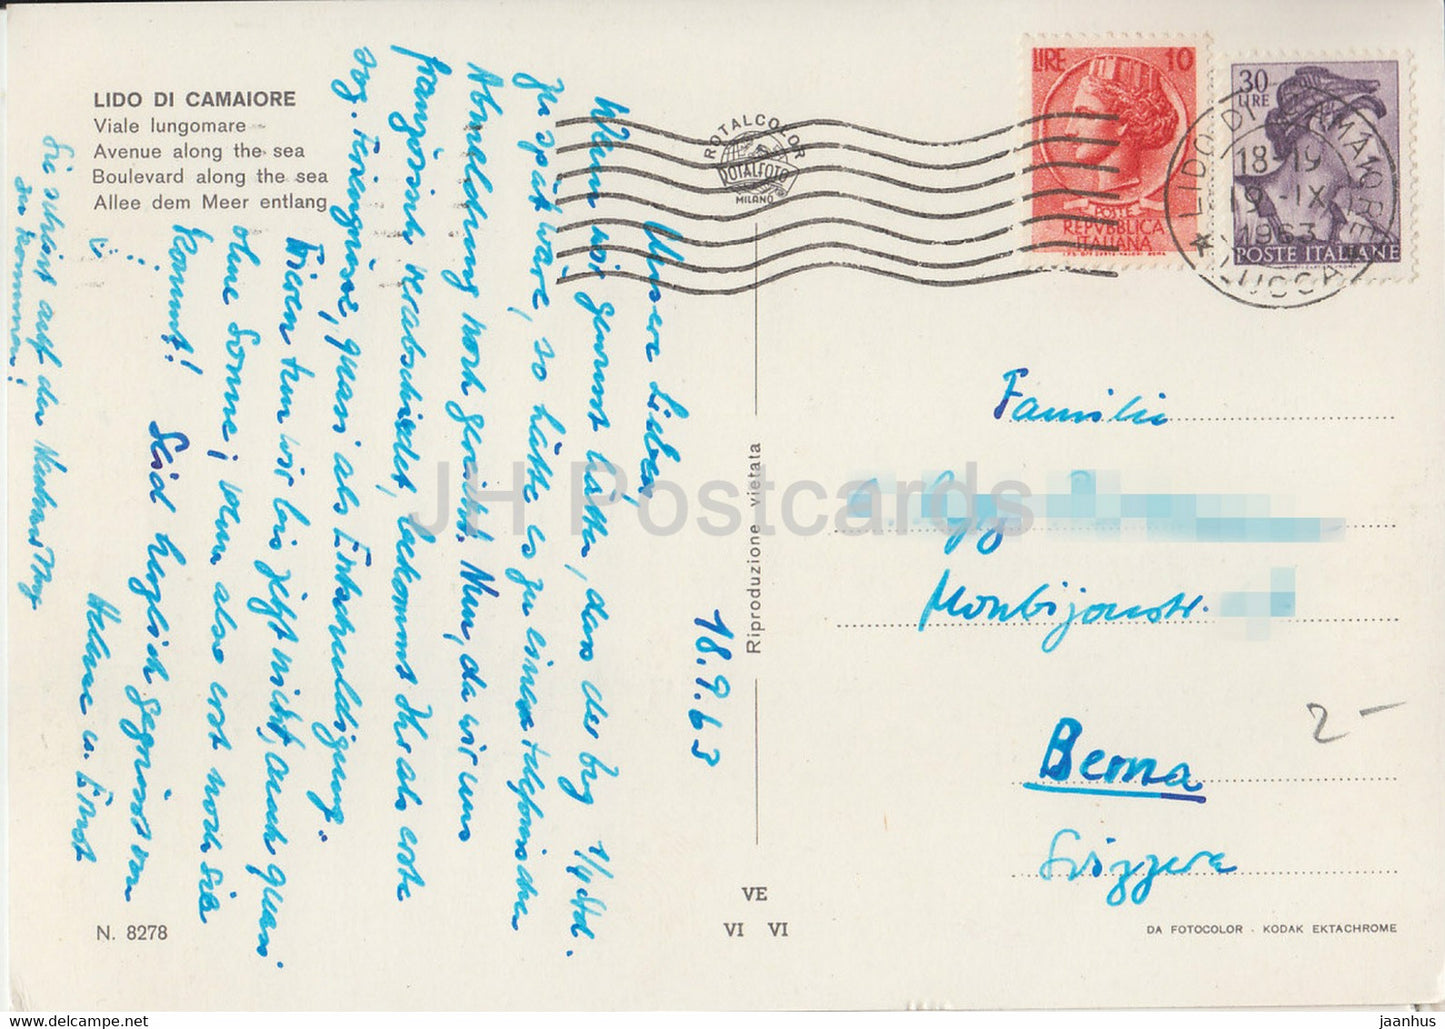 LIDO DI CAMAIORE
Viale lungomare
Avenue along the sea
Boulevard along the sea
Allee dem Meer entlang
18.9.63
Unsere Lieben,
Wenn wir gewusst hätten, dass der Zug 1/4 Std.
zu spät wäre, so hätte es zu einer telefonischen
Abmeldung noch gereicht. Nun, da wir uns
französisch verabschiedet, bekommt Ihr als erste
sog. Feriengrüsse, quasi als Entschuldigung.
Frieren tun wir bis jetzt nicht, auch quasi
ohne Sonne;
also erst noch
kommt!
Seid herzlich gegrüsst von
Helene u. Ernst
Sie scheint auf den
zu kommen!
ROTALCOLOR
ROTALFOTO
MILANO
Riproduzione vietata
LIRE 10
POSTE
REPVBBLICA
ITALIANA
30
LIRE
POSTE ITALIANE
LIDO DI CAMAIORE
18-19
19 - IX
1963
LUCCA
Familie
Monbijoustr.
Berna
Svizzera
2-
N. 8278
VE
VI VI
DA FOTOCOLOR · KODAK EKTACHROME
JH Postcards
www.delcampe.net
jaanhus